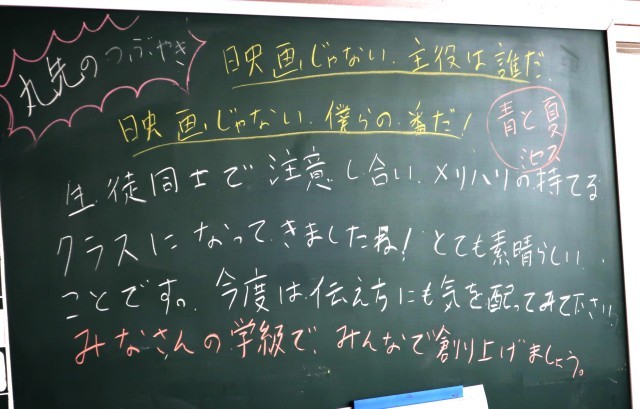 丸先のつぶやき
映画じゃない 主役は誰だ
映画じゃない 僕らの番だ!
青と夏
生徒同士で注意し合い メリハリの持てる
クラスになってきましたね! とても素晴らしい
ことです。今度は伝え方にも気を配ってみて下さい
みなさんの学級で、みんなで創り上げましょう。